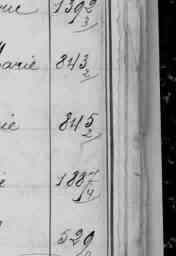 1392
3
arie 843
2
ie 845
2
1887
4
529